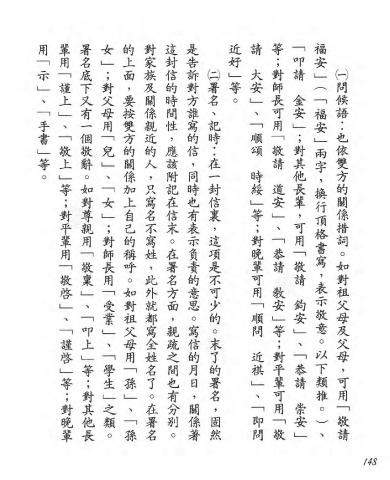 ㈠問候語：也依雙方的關係措詞。如對祖父母及父母，可用「敬請
福安」（「福安」兩字，換行頂格書寫，表示敬意。以下類推。）、
「叩請　金安」；對其他長輩，可用「敬請　鈞安」、「恭請　崇安」
等；對師長可用「敬請　道安」、「恭請　教安」等；對平輩可用「敬
請　大安」、「順頌　時綏」等；對晚輩可用「順問　近祺」、「即問
近好」等。
㈡署名、記時：在一封信裏，這項是不可少的。末了的署名，固然
是告訴對方誰寫的信，同時也有表示負責的意思。寫信的月日，關係著
這封信的時間性，應該附記在信末。在署名方面，親疏之間也有分別。
對家族及關係親近的人，只寫名不寫姓，此外就都寫全姓名了。在署名
的上面，要按雙方的關係加上自己的稱呼。如對祖父母用「孫」、「孫
女」；對父母用「兒」、「女」；對師長用「受業」、「學生」之類。
署名底下又有一個敬辭。如對尊親用「敬稟」、「叩上」等；對其他長
輩用「謹上」、「敬上」等；對平輩用「敬啓」、「謹啓」等；對晚輩
用「示」、「手書」等。
148